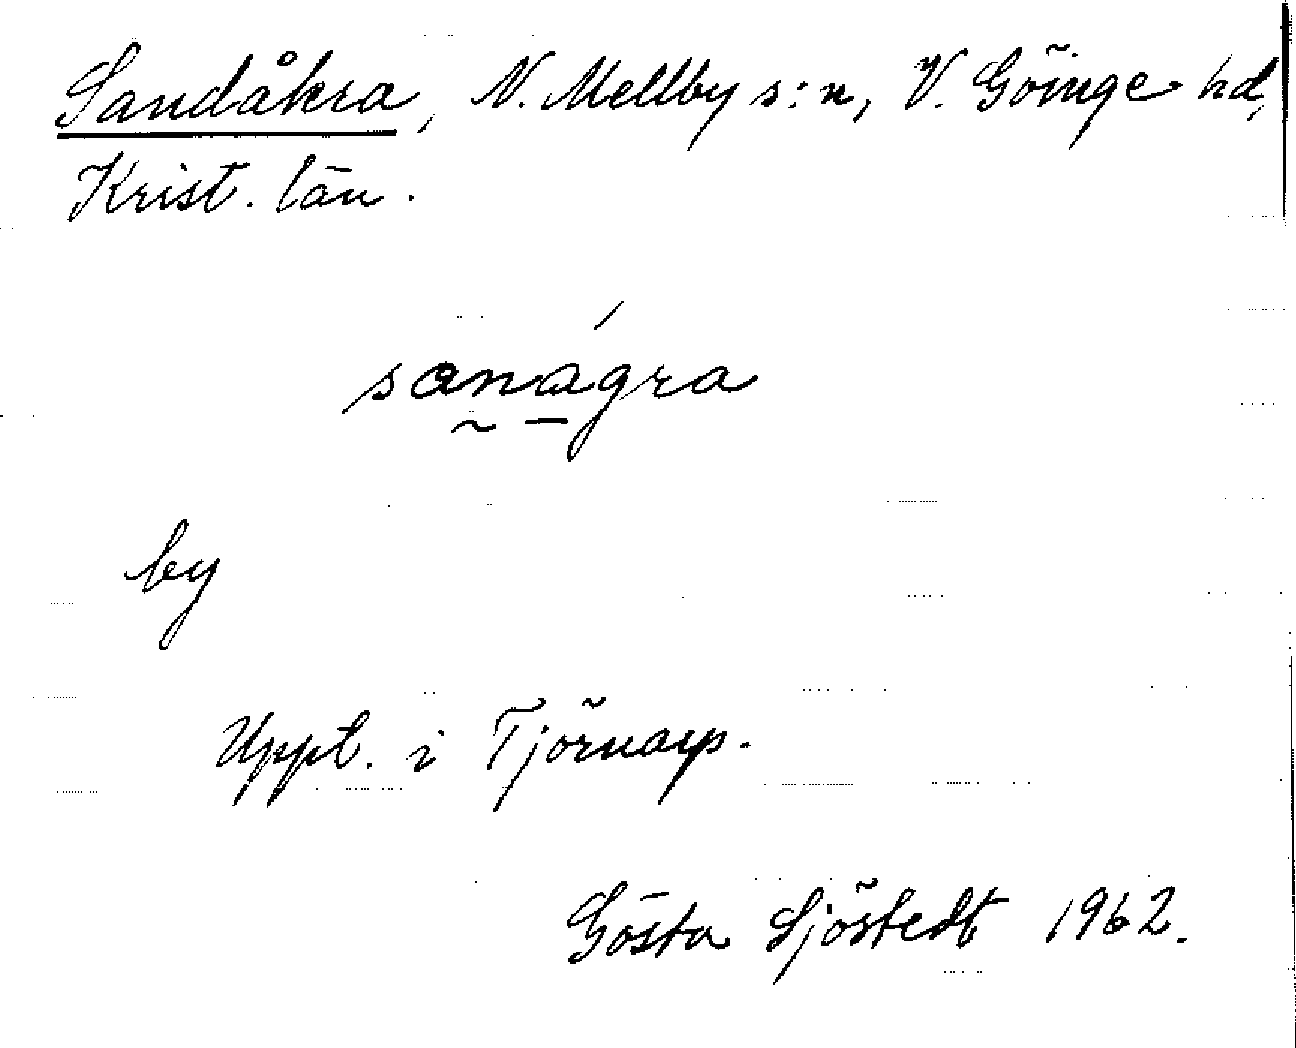 Sandåkra, N. Mellby s:n, V. Göinge hd,
Krist. län.
sanagra
by
Uppt. i Tjörnarp.
Gösta Sjöstedt 1962.